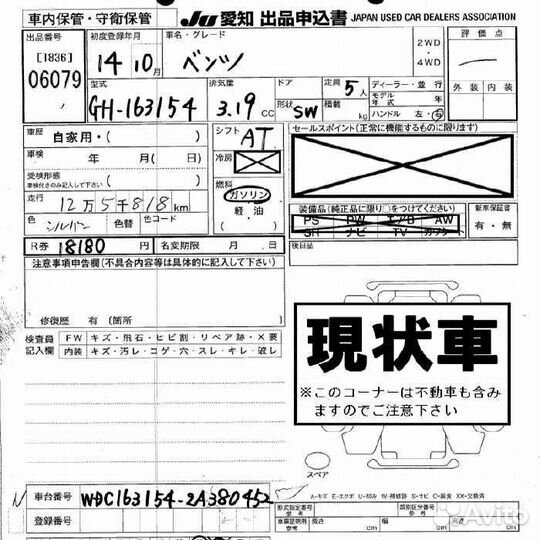 車内保管・守衛保管
JU 愛知 出品申込書 JAPAN USED CAR DEALERS ASSOCIATION
出品番号
[1836]
06079
初度登録年月
14年10月
車名・グレード
ベンツ
2WD
・
4WD
評価点
外装 内装
型式
GH-163154
排気量
3.19 CC
ドア
形状 SW
定員 5人
積載 kg
ディーラー・並行
モデル年式 年
ハンドル 左・右
車歴 自家用・( )
車検 年 月(日)
受検形態
車検付きのみ記入して下さい ( )
走行 12万5千818km
色 シルバー 色替 色コード
R券 18180円 名変期限 月 日
シフト AT
冷房
燃料
ガソリン
軽・油
( )
セールスポイント(正常に機能するものに限ります)
装備品(純正品に限り○をつけてください)
PS PW エアB AW
SR ナビ TV カワシート
新車保証書
有・無
後日品
注意事項申告欄(不具合内容等は具体的に記入して下さい)
修復歴 有(箇所
検査員記入欄
FW キズ・飛石・ヒビ割・リペア跡・X要
内装 キズ・汚レ・コゲ・穴・スレ・キレ・破レ
現状車
※このコーナーは不動車も含みますのでご注意下さい
スペア
A-キズ E-エクボ U-凹み W-補修跡 S-サビ C-腐食 XX-交換済
N 車台番号 WDC163154-2A380452
登録番号
形式指定番号
参考
類別区分番号
参考
車庫証明用
参考
長さ cm 幅 cm 高さ cm
Avito